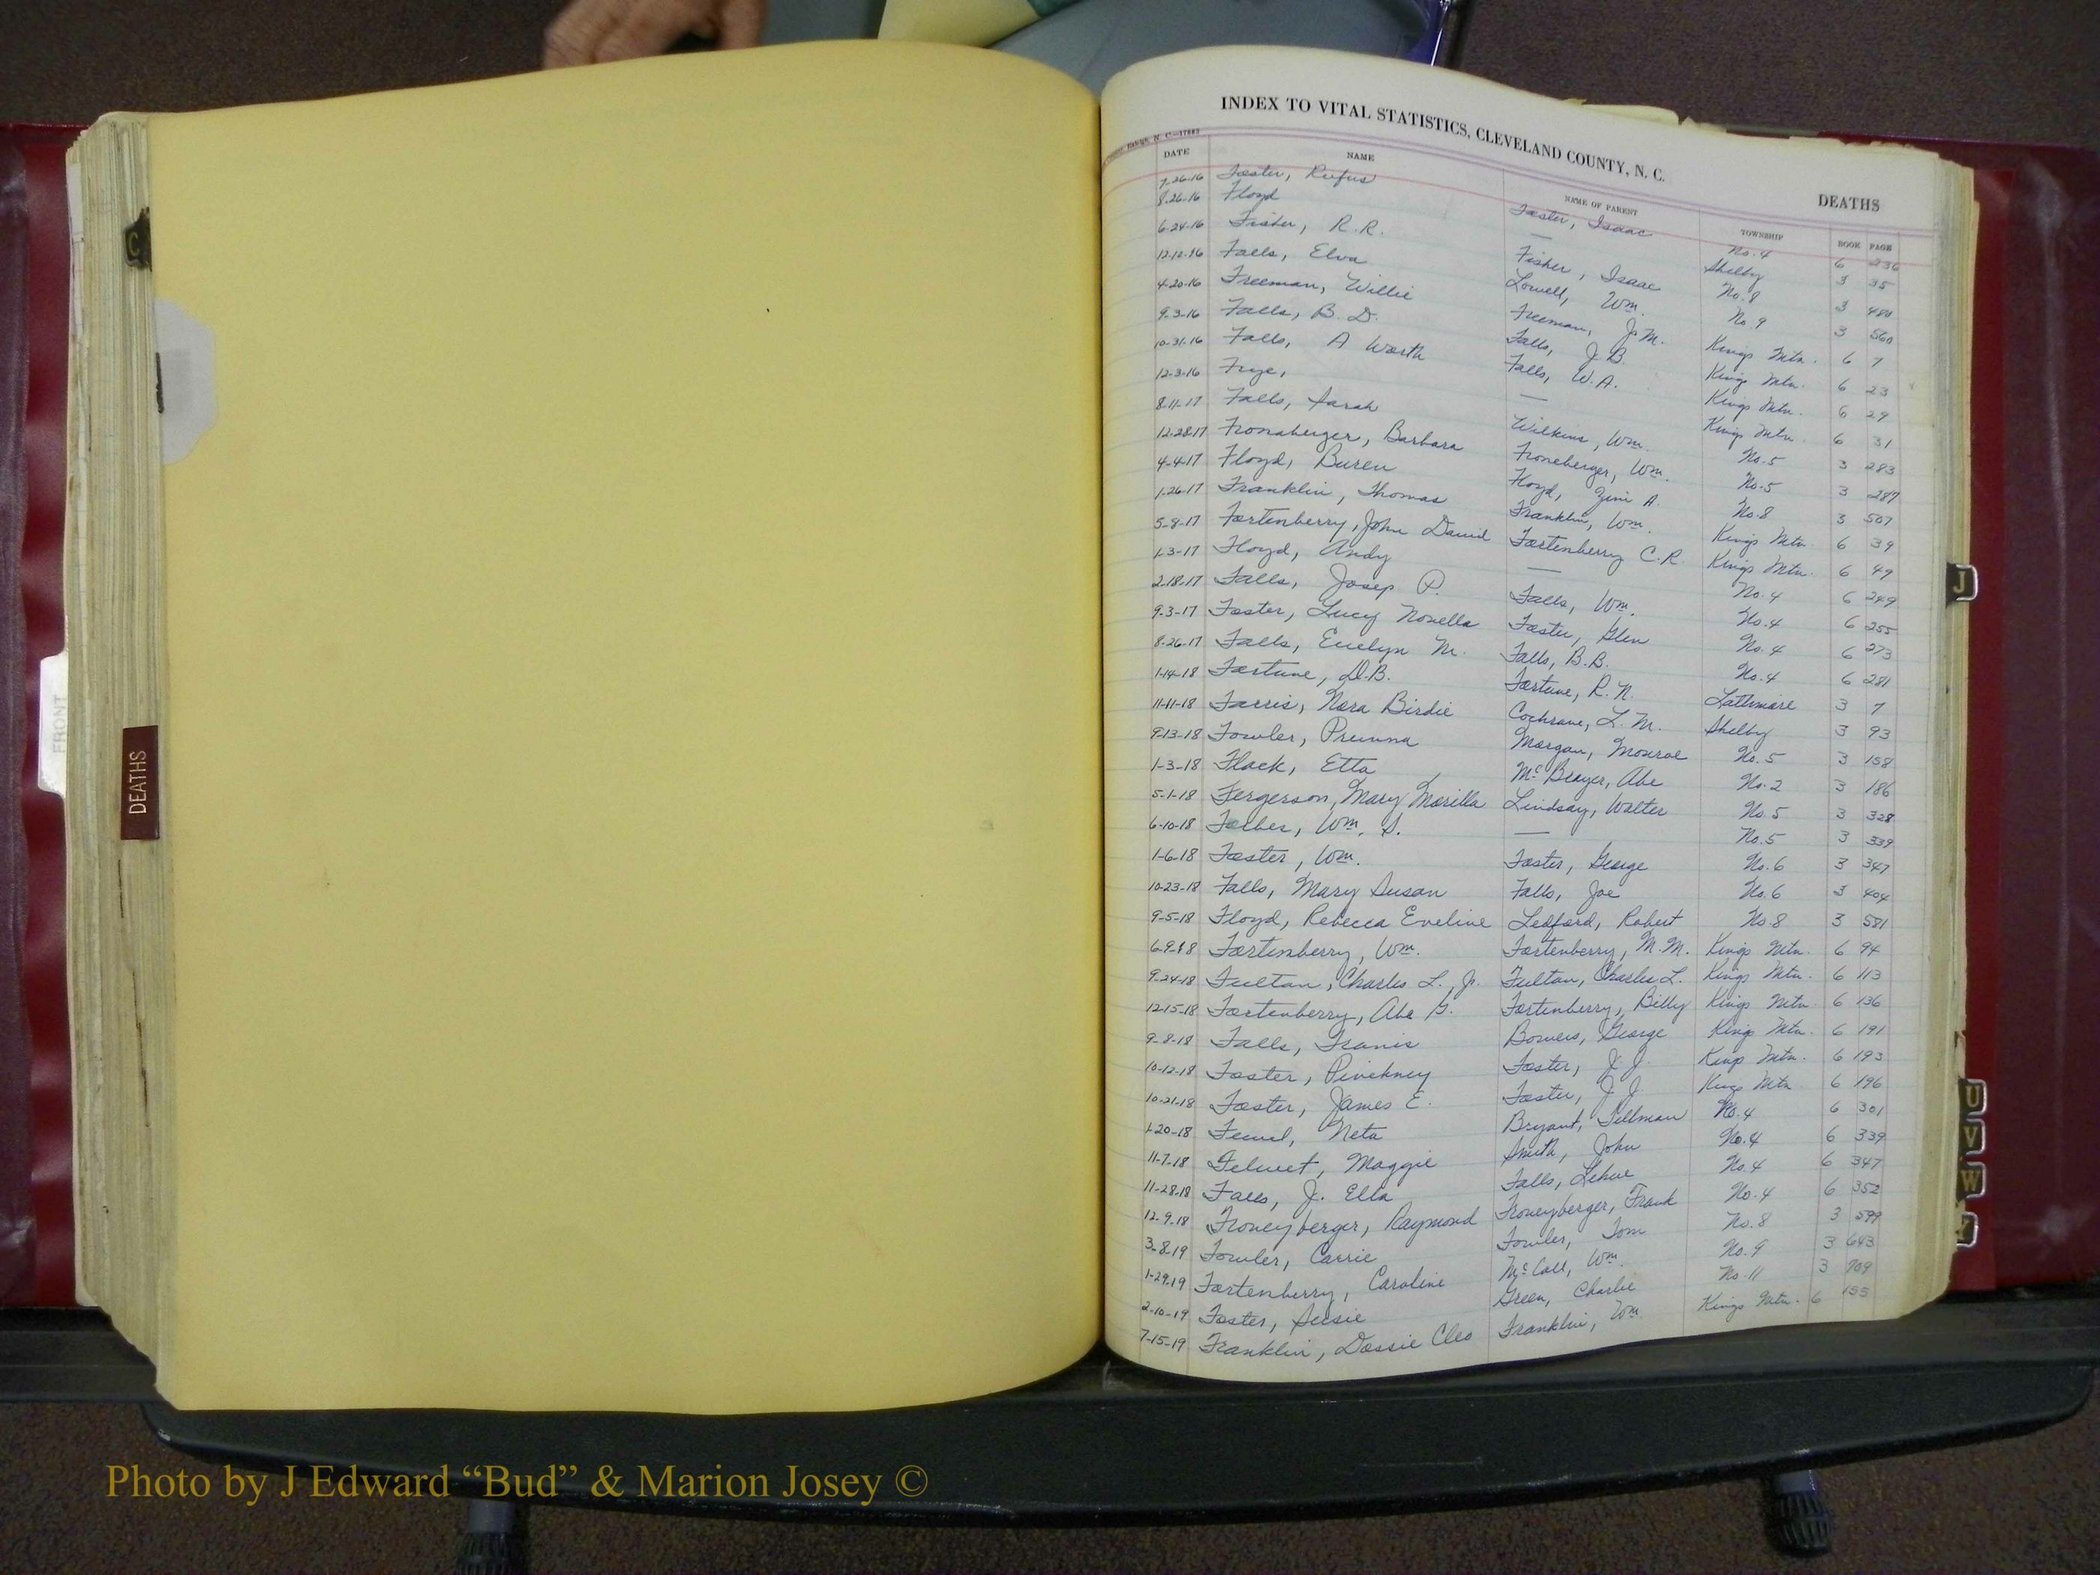 INDEX TO VITAL STATISTICS, CLEVELAND COUNTY, N. C.
DEATHS
DATE NAME NAME OF PARENT TOWNSHIP BOOK PAGE
7-26-16 Foster, Rufus Foster, Isaac No. 4 6 236
8-26-16 Floyd — Shelby 3 35
6-24-16 Fisher, R. R. Fisher, Isaac No. 8 3 480
12-12-16 Falls, Elva Lowell, Wm. No. 9 3 560
4-20-16 Freeman, Willie Freeman, J. M. Kings Mtn. 6 7
9-3-16 Falls, B. D. Falls, J. B. Kings Mtn. 6 23
10-31-16 Falls, A Worth Falls, W. A. Kings Mtn. 6 29
12-3-16 Frye, — Kings Mtn. 6 31
8-11-17 Falls, Sarah Wilkins, Wm. No. 5 3 283
12-28-17 Fronaberger, Barbara Froneberger, Wm. No. 5 3 287
4-4-17 Floyd, Buren Floyd, A. No. 8 3 507
1-26-17 Franklin, Thomas Franklin, Wm. Kings Mtn 6 39
5-8-17 Fortenberry, John David Fortenberry C. R. Kings Mtn. 6 49
1-3-17 Floyd, Andy — No. 4 6 249
2-18-17 Falls, Josep P. Falls, Wm. No. 4 6 255
9-3-17 Foster, Lucy Novella Foster, Glen No. 4 6 273
8-26-17 Falls, Evelyn M. Falls, B. B. No. 4 6 281
1-14-18 Fortune, D. B. Fortune, R. N. Lattimore 3 7
11-11-18 Farris, Nora Birdie Cochrane, L. M. Shelby 3 93
9-13-18 Fowler, Morgan, Monroe No. 5 3 158
1-3-18 Flack, Etta McBrayer, Abe No. 2 3 186
5-1-18 Fergerson, Mary Morilla Lindsay, Walter No. 5 3 328
6-10-18 Forbes, Wm. S. — No. 5 3 339
1-6-18 Foster, Wm. Foster, George No. 6 3 347
10-23-18 Falls, Mary Susan Falls, Joe No. 6 3 404
9-5-18 Floyd, Rebecca Eveline Ledford, Robert No. 8 3 581
6-9-18 Fortenberry, Wm. Fortenberry, M. M. Kings Mtn. 6 94
9-24-18 Fulton, Charles L., Jr. Fulton, Charles L. Kings Mtn. 6 113
12-15-18 Fortenberry, Abe G. Fortenberry, Billy Kings Mtn 6 136
9-8-18 Falls, Franis Bowers, George Kings Mtn. 6 191
10-12-18 Foster, Pinckney Foster, J. J. Kings Mtn. 6 193
10-21-18 Foster, James E. Foster, J. J. Kings Mtn 6 196
1-20-18 Neta Bryant, Tillman No. 4 6 301
11-7-18 Felmet, Maggie Smith, John No. 4 6 339
11-28-18 Falls, J. Ella Falls, Lehue No. 4 6 347
12-9-18 Froneyberger, Raymond Froneyberger, Frank No. 4 6 352
3-8-19 Fowler, Carrie Fowler, Tom No. 8 3 599
1-29-19 Fortenberry, Caroline McCall, Wm. No. 9 3 643
2-10-19 Foster, Susie Green, Charlie No. 11 3 709
7-15-19 Franklin, Dossie Cleo Franklin, Wm. Kings Mtn. 6 155
C
FRONT
DEATHS
J
U
V
W
Photo by J Edward “Bud” & Marion Josey ©